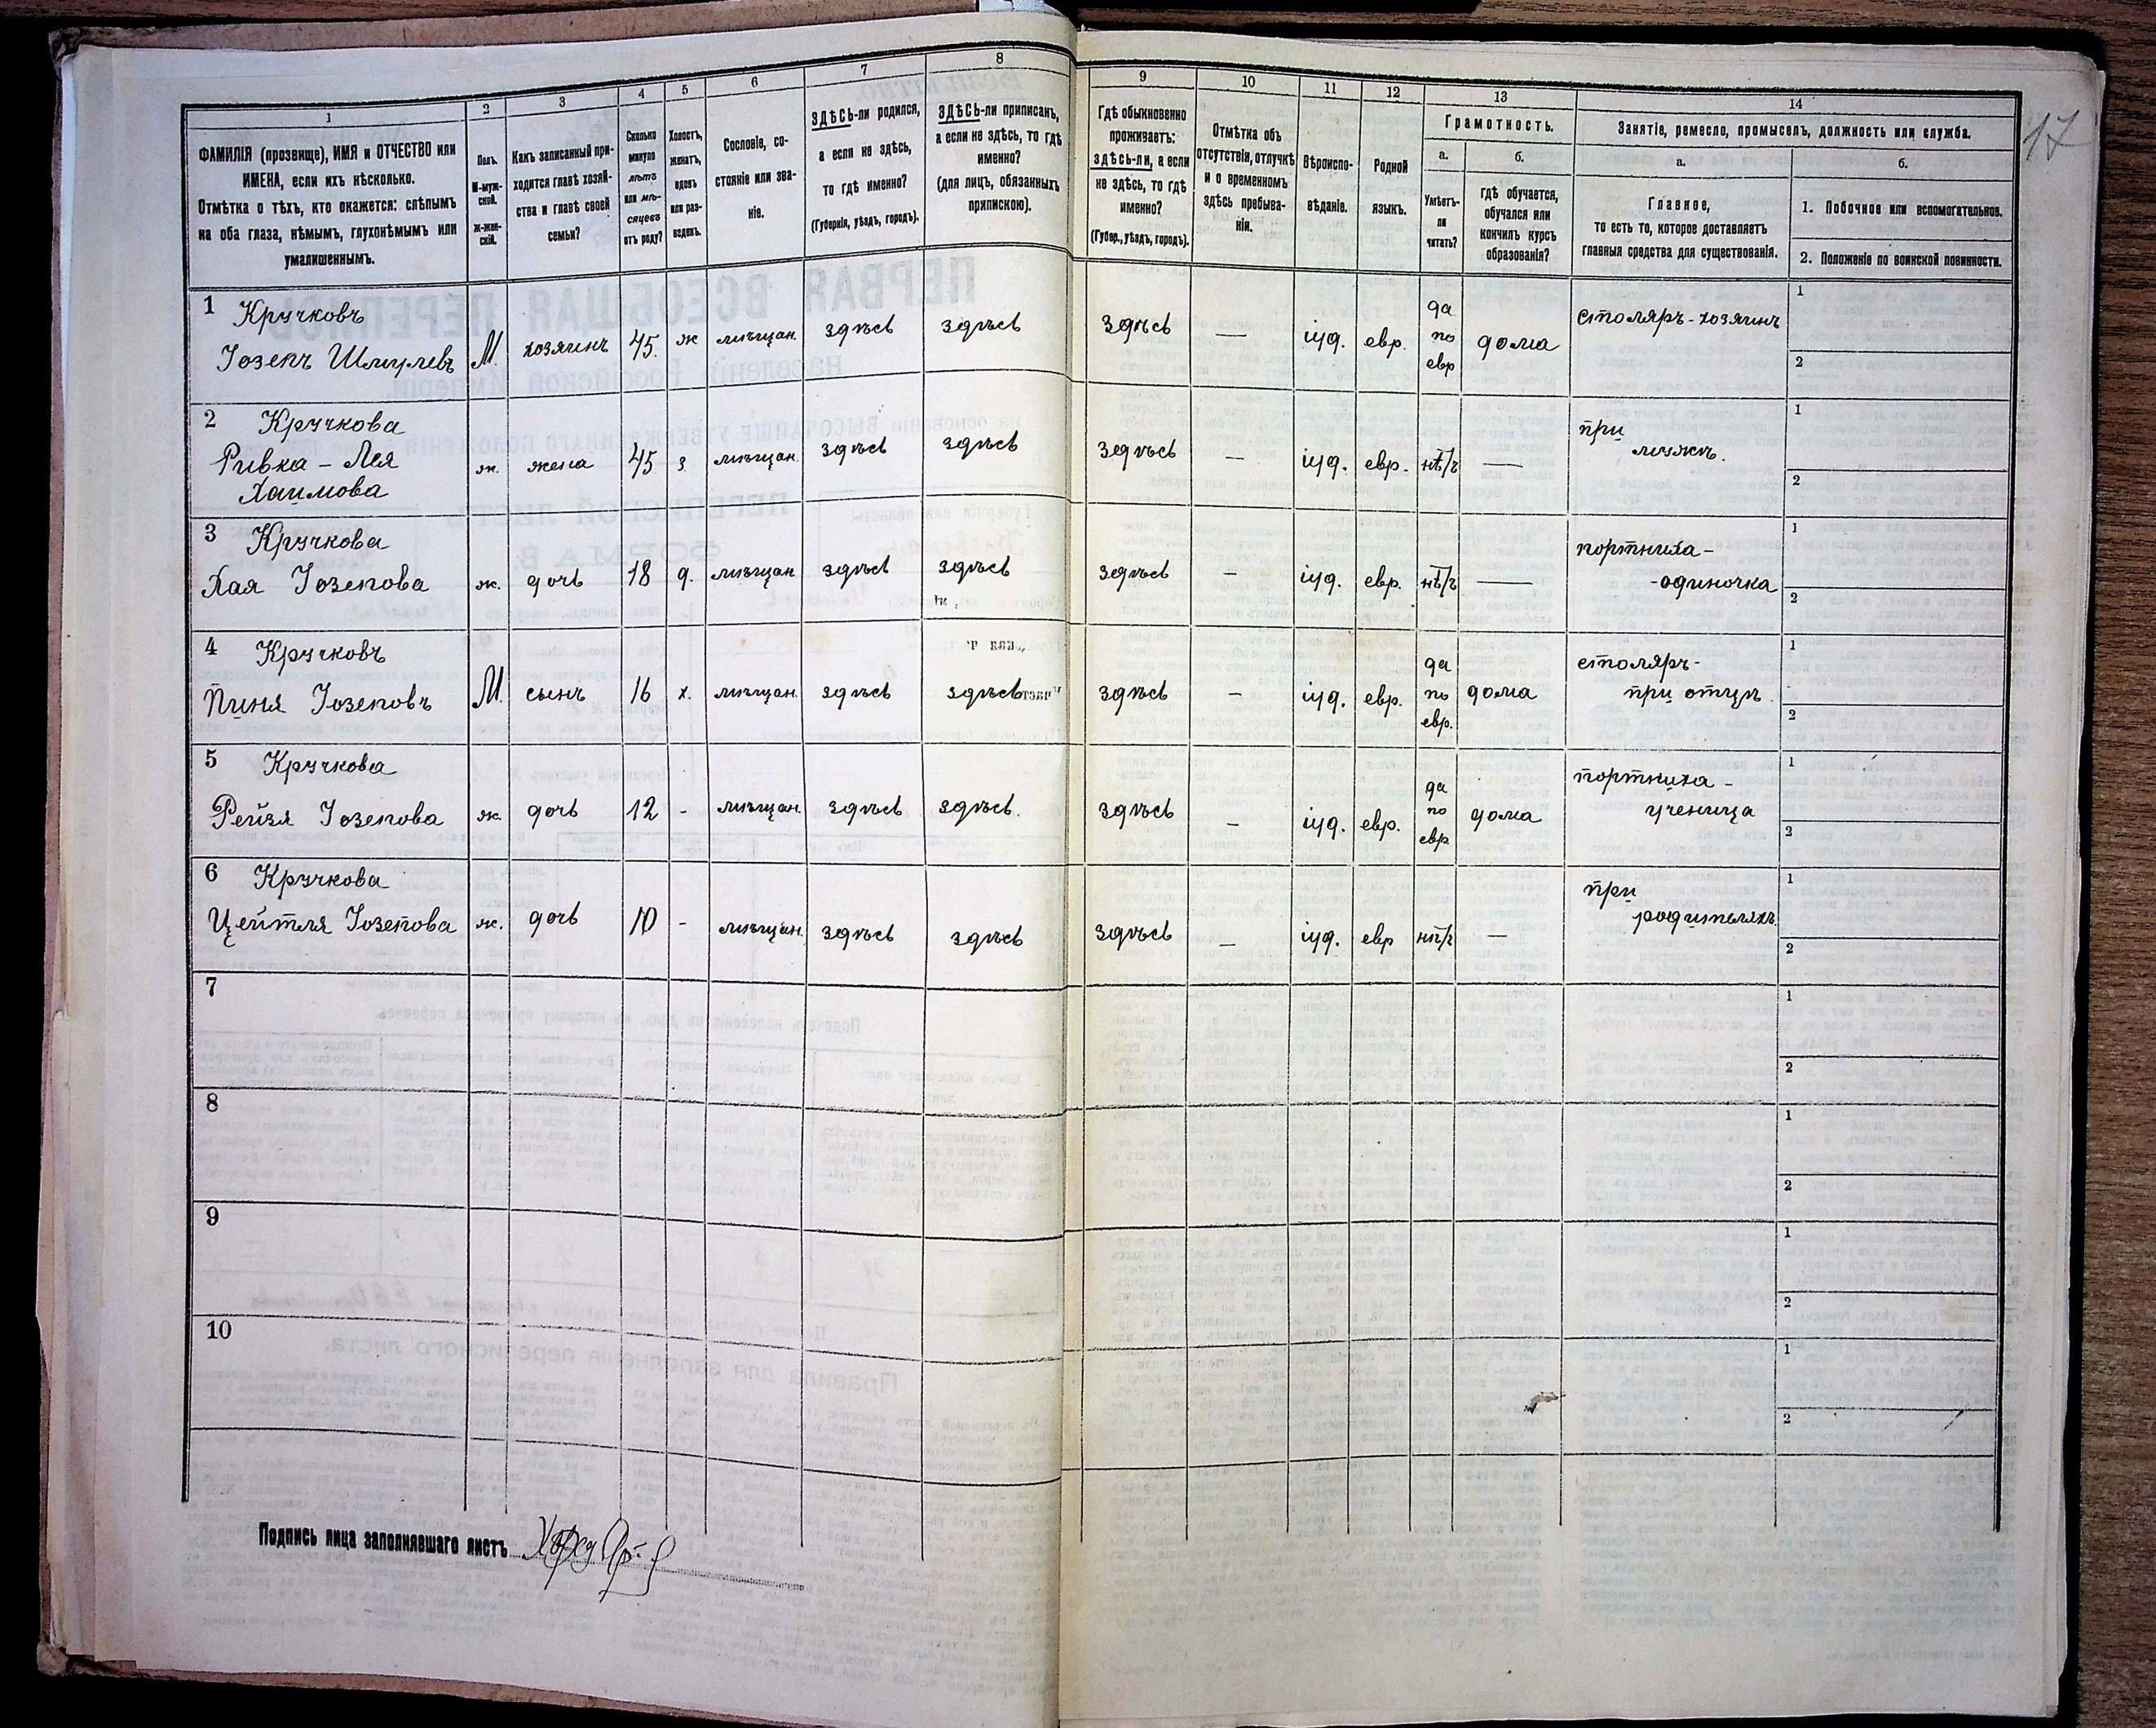 17
1 2 3 4 5 6 7 8 9 10 11 12 13 14
ФАМИЛІЯ (прозвище), ИМЯ и ОТЧЕСТВО или
ИМЕНА, если ихъ нѣсколько.
Отмѣтка о тѣхъ, кто окажется: слѣпымъ
на оба глаза, нѣмымъ, глухонѣмымъ или
умалишеннымъ.
Полъ.
М-муж-
ской.
Ж-жен-
скій.
Какъ записанный при-
ходится главѣ хозяй-
ства и главѣ своей
семьи?
Сколько
минуло
лѣтъ
или мѣ-
сяцевъ
отъ роду?
Холостъ,
женатъ,
вдовъ
или раз-
веденъ.
Сословіе, со-
стояніе или зва-
ніе.
ЗДѢСЬ-ли родился,
а если не здѣсь,
то гдѣ именно?
(Губернія, уѣздъ, городъ).
ЗДѢСЬ-ли приписанъ,
а если не здѣсь, то гдѣ
именно?
(для лицъ, обязанныхъ
припискою).
Гдѣ обыкновенно
проживаетъ:
здѣсь-ли, а если
не здѣсь, то гдѣ
именно?
(Губер., уѣздъ, городъ).
Отмѣтка объ
отсутствіи, отлучкѣ
и о временномъ
здѣсь пребыва-
ніи.
Вѣроиспо-
вѣданіе.
Родной
языкъ.
Грамотность.
а.
Умѣетъ-
ли
читать?
б.
гдѣ обучается,
обучался или
кончилъ курсъ
образованія?
Занятіе, ремесло, промыселъ, должность или служба.
а.
Главное,
то есть то, которое доставляетъ
главныя средства для существованія.
б.
1. Побочное или вспомогательное.
2. Положеніе по воинской повинности.
1 Кручковъ
Іозепъ Шмулевъ М. хозяинъ 45. ж мѣщан. здѣсь здѣсь здѣсь — іуд. евр. да по евр дома столяръ-хозяинъ 1 2
2 Кручкова
Ривка - Лея
Хаимова ж. жена 45 з. мѣщан. здѣсь здѣсь здѣсь — іуд. евр. нѣтъ — при мужѣ. 1 2
3 Кручкова
Хая Іозепова ж. дочь 18 д. мѣщан здѣсь здѣсь здѣсь — іуд. евр. нѣтъ — портниха-
-одиночка 1 2
4 Кручковъ
Пиня Іозеповъ М. сынъ 16 х. мѣщан. здѣсь здѣсь здѣсь — іуд. евр. да по евр. дома столяръ-
при отцѣ. 1 2
5 Кручкова
Рейзя Іозепова ж. дочь 12 - мѣщан. здѣсь здѣсь. здѣсь — іуд. евр. да по евр. дома портниха -
ученица 1 2
6 Кручкова
Цейтля Іозепова ж. дочь 10 - мѣщан. здѣсь здѣсь здѣсь — іуд. евр нѣтъ — при
родителяхъ. 1 2
7 1 2
8 1 2
9 1 2
10 1 2
Подпись лица заполнявшаго листъ